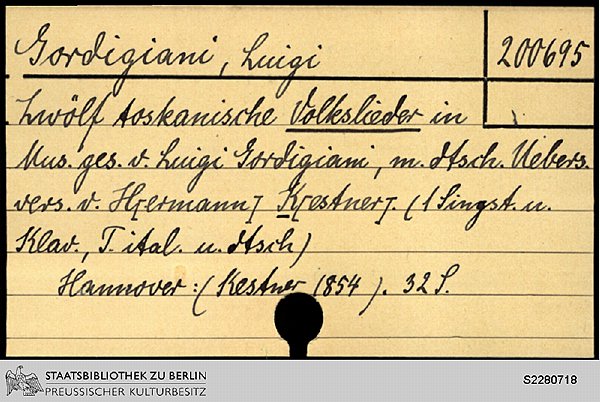 Gordigiani, Luigi
200695
Zwölf toskanische Volkslieder in
Mus. ges. v. Luigi Gordigiani, m. dtsch. Uebers.
vers. v. H[ermann] K[estner]. (1 Singst. u.
Klav., T. ital. u. dtsch)
Hannover: (Kestner 1854). 32 S.
STAATSBIBLIOTHEK ZU BERLIN
PREUSSISCHER KULTURBESITZ
S2280718